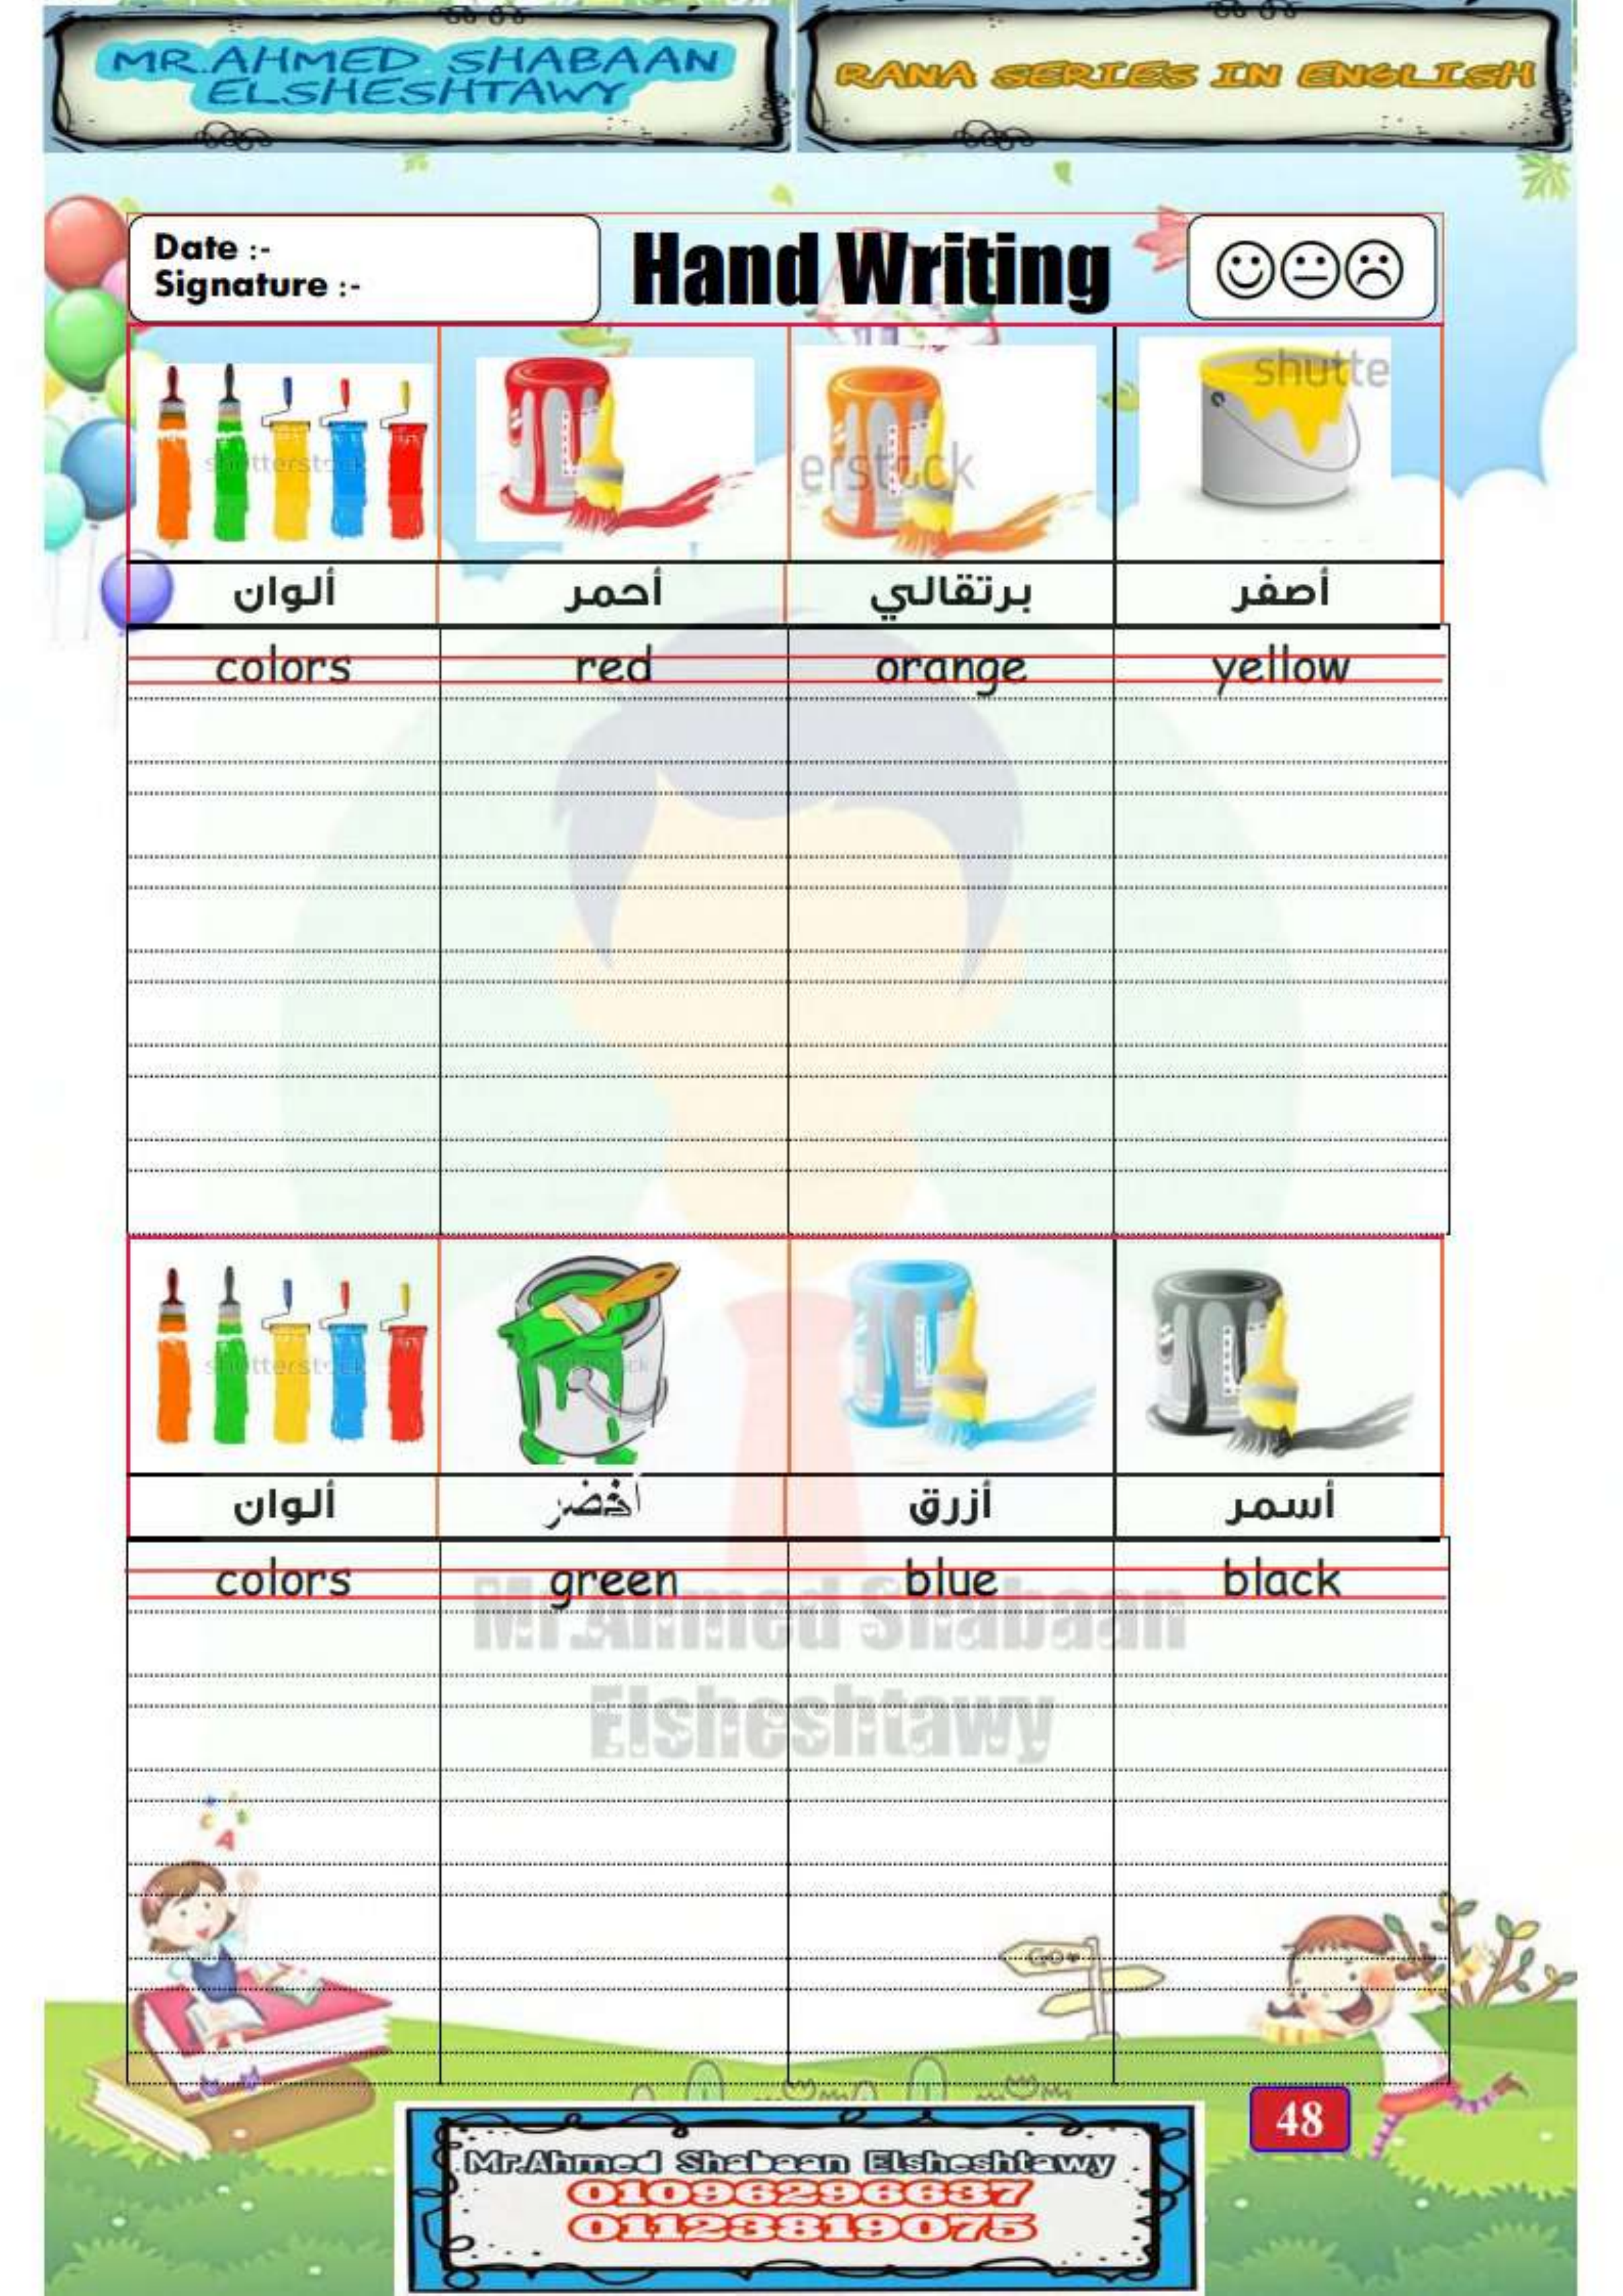 MR.AHMED SHABAAN
ELSHESHTAWY
RANA SERIES IN ENGLISH
Date :-
Signature :-
Hand Writing
shutterstock
erstock
shutte
ألوان أحمر برتقالي أصفر
colors red orange yellow
shutterstock
ألوان أخضر أزرق أسمر
colors green blue black
Mr.Ahmed Shabaan
Elsheshtawy
A
Go
48
Mr.Ahmed Shabaan Elsheshtawy
01096296637
01123819075